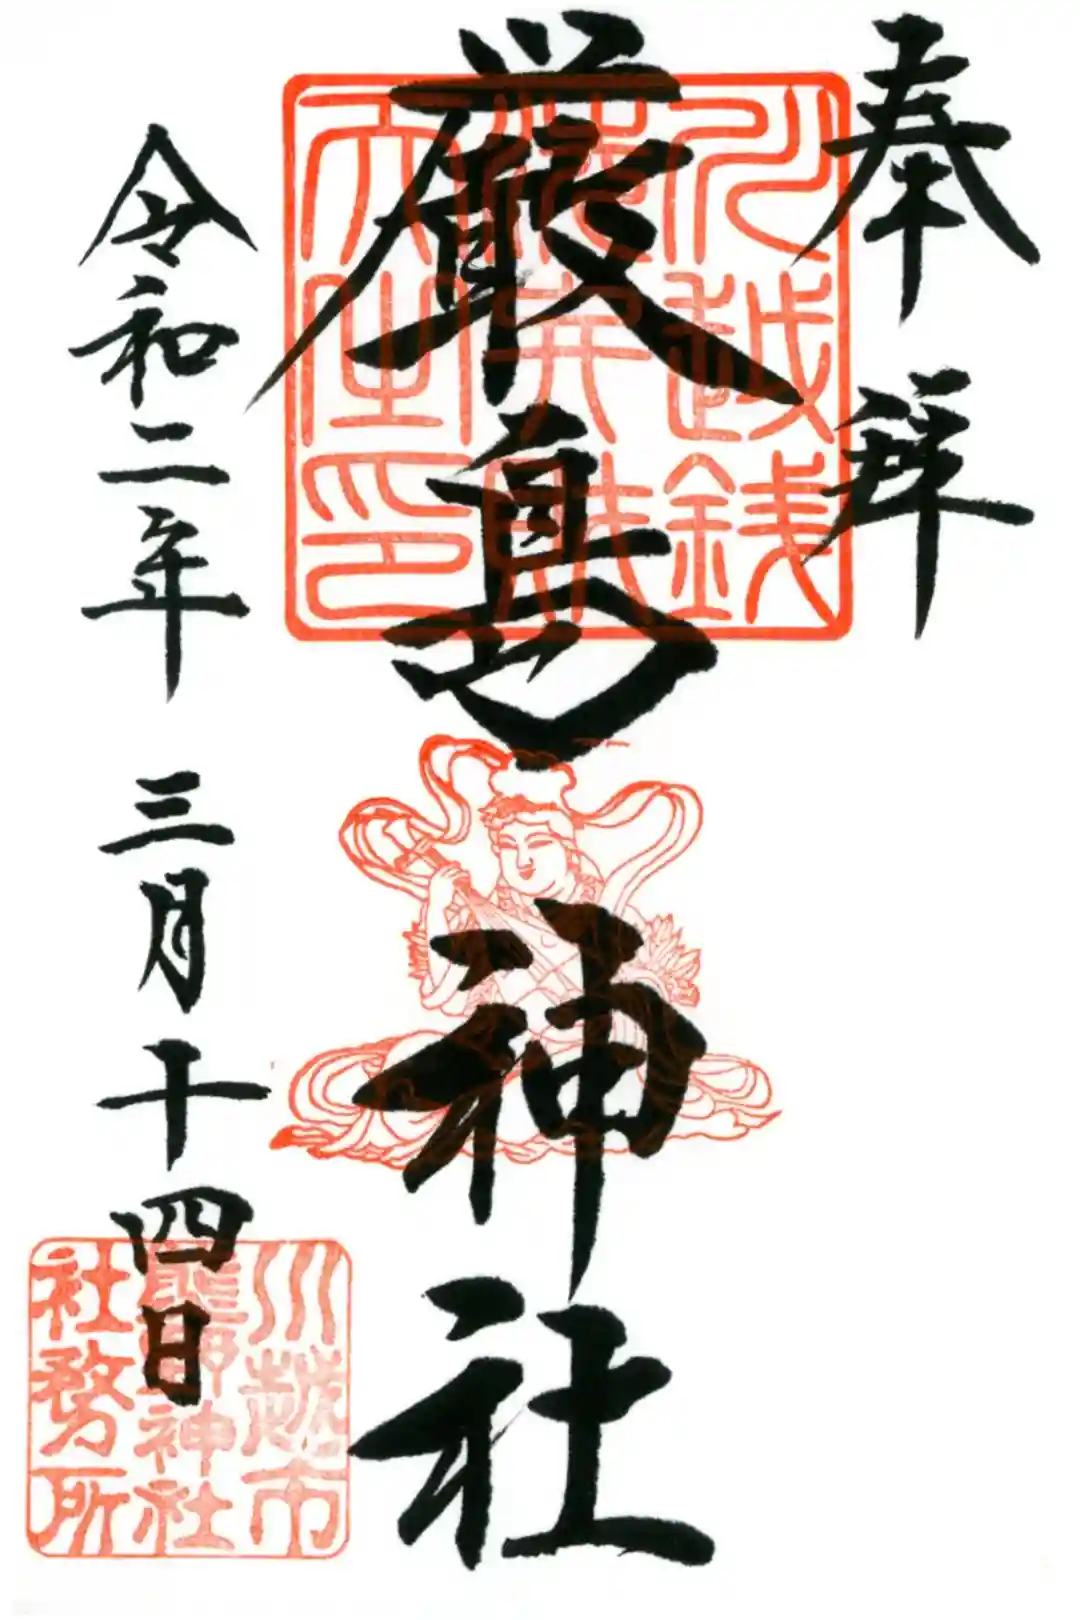 奉拜
川越銭
洗弁財
天宝印
厳島神社
令和二年 三月十四日
川越市
熊野神社
社務所